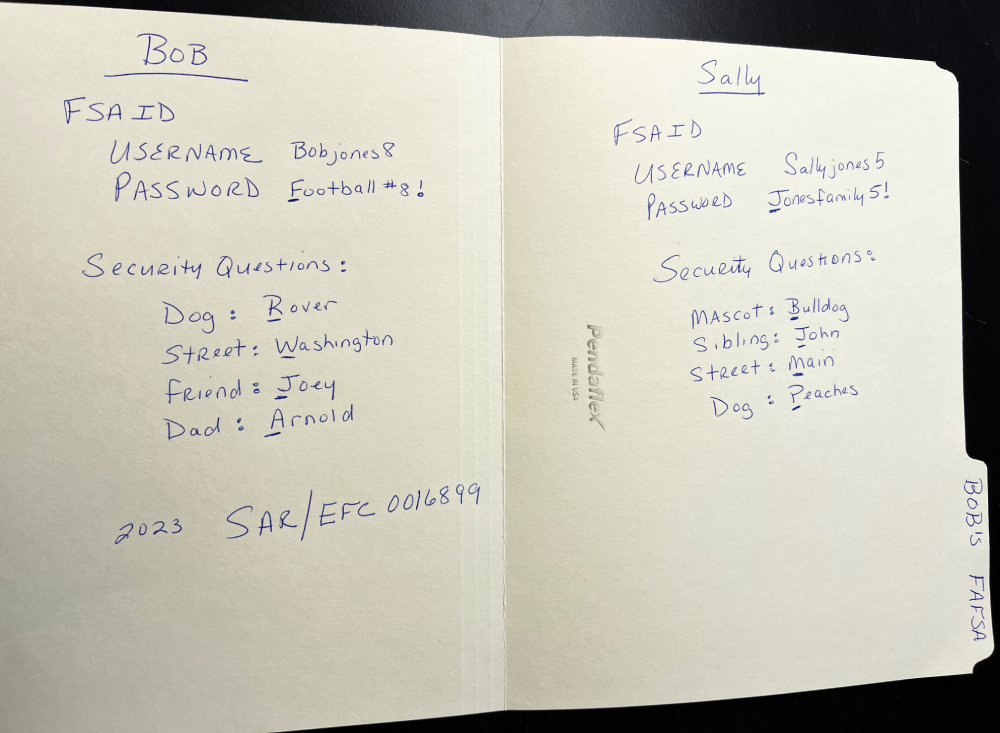 BOB
FSA ID
USERNAME Bobjones8
PASSWORD Football#8!
Security Questions:
Dog: Rover
Street: Washington
Friend: Joey
Dad: Arnold
2023 SAR/EFC 0016899
Sally
FSA ID
USERNAME Sallyjones5
PASSWORD Jonesfamily5!
Security Questions:
MAscot: Bulldog
Sibling: John
Street: Main
Dog: Peaches
Pendaflex
MADE IN USA
BOB'S FAFSA